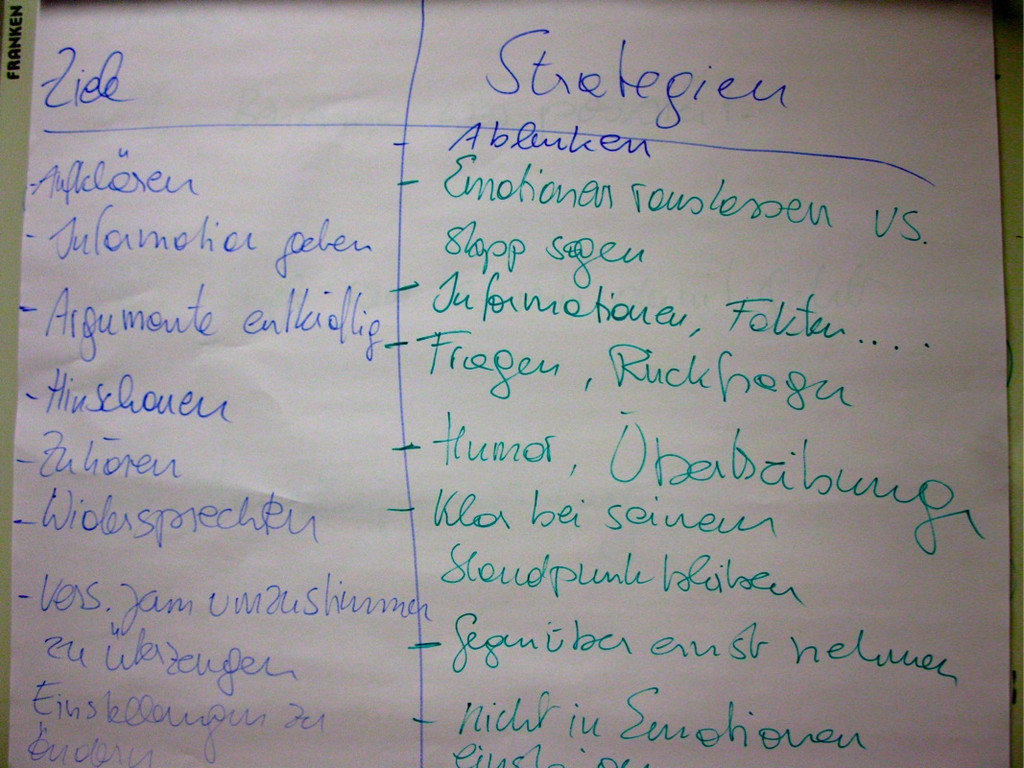 FRANKEN
Ziele
- Aufklären
- Information geben
- Argumente entkräftig
- Hinschauen
- Zuhören
- Widersprechen
- Vers. jem umzustimmen
zu überzeugen
Einstellungen zu
ändern
Strategien
- Ablenken
- Emotionen rauslassen vs.
stopp sagen
- Informationen, Fakten....
- Fragen, Rückfragen
- Humor, Übertreibung
- Klar bei seinem
Standpunkt bleiben
- Gegenüber ernst nehmen
- nicht in Emotionen